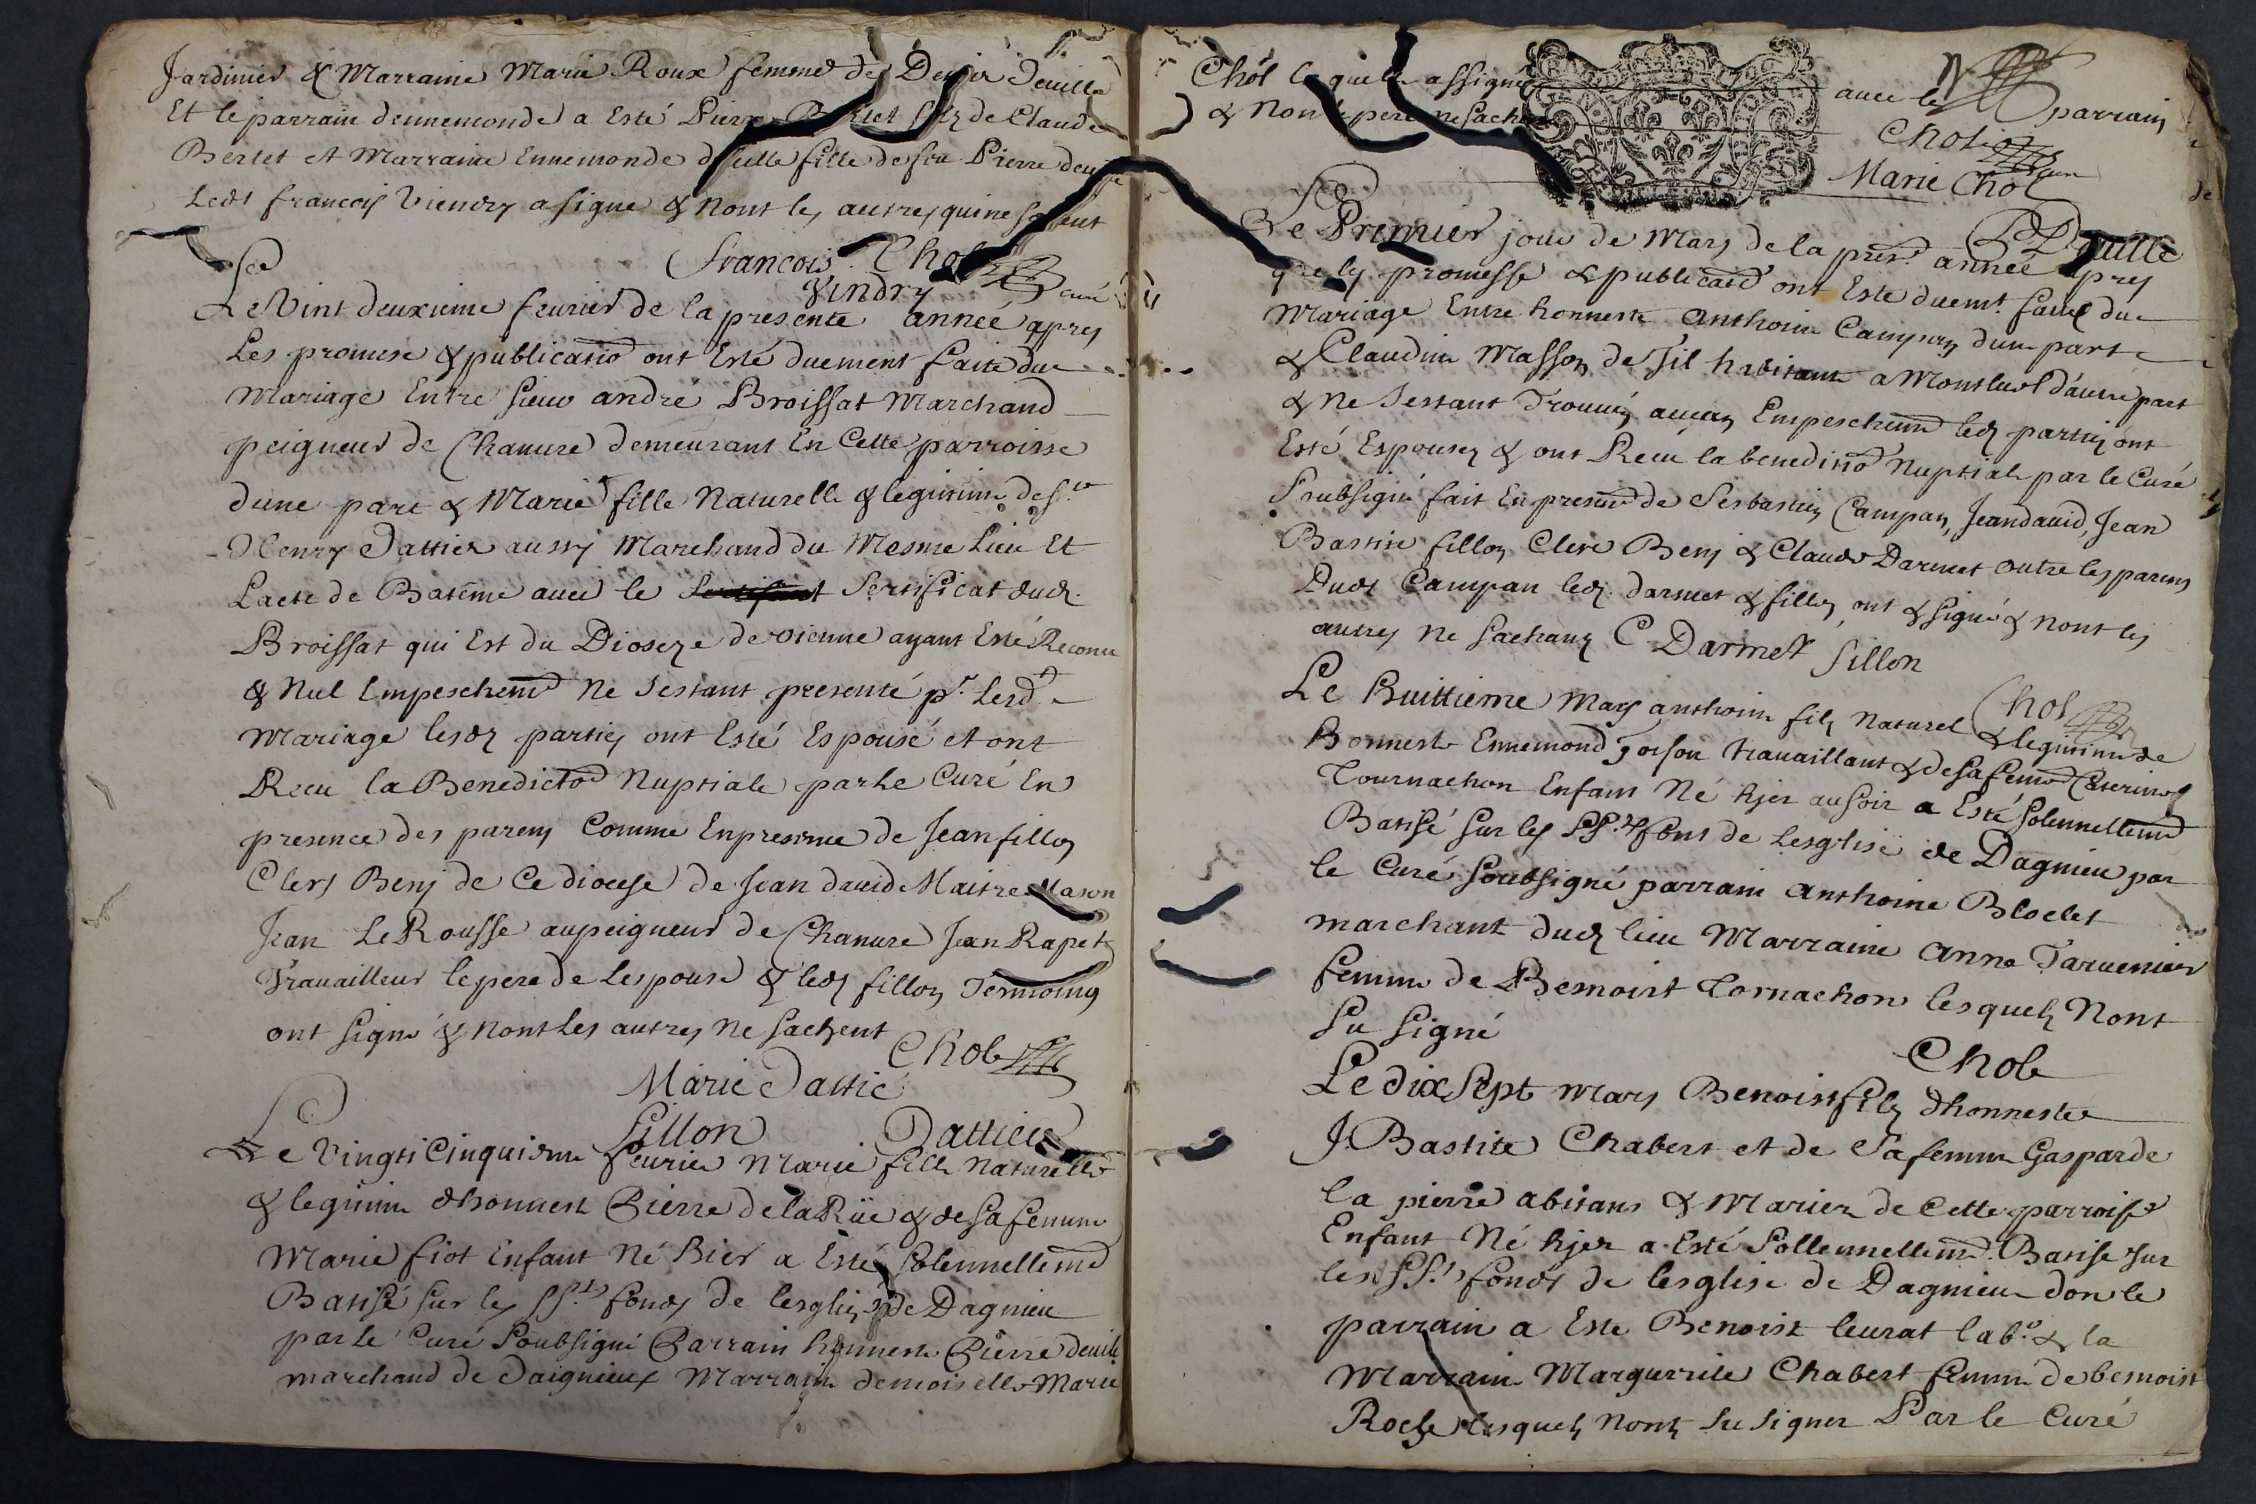 Jardinier & Marraine Marie Roux femme de Deuille
Et le parrain dennemonde a Esté Pierre Bertet filz de Claude
Bertet et Marraine Ennemonde deuille fille de feu Pierre deuille
Ledt francois Viendry a signé & Nont les autres qui ne sachent
francois Vindry Chol curé
Le Vint deuxieme feurier de la presente année apres
Les promese & publicatio ont Esté duement faite du
Mariage Entre sieur andré Broissat Marchand
peigneur de Chanure demeurant En Cette parroisse
dune part & Marie fille Naturelle & legitime de sr
Henry Dattier aussy Marchand du Mesme Lieu Et
Lacte de Batéme auec le Sertificat dud.
Broissat qui Est du Dioseze de vienne ayant Esté Reconu
& Nul Empeschemt Ne sestant presenté pr. Lesd.
Mariage lesdz parties ont Esté Espousé et ont
Receu la Benedicto Nuptiale par Le Curé En
presence des parens Comme En presence de Jean fillon
Clerc Benj de Ce diocese de Jean dauid Maitre Mason
Jean Le Rousse aupeigneur de Chanure Jean Rapet
Trauailleur le pere de Lespouse & ledt fillon Temoings
ont signé & Nont Les autres Ne sachent
Chol
Marie Dattié
fillon Dattier
Le Vingti Cinquieme feurier Marie fille Naturelle
& legitime dhonneste Pierre de la Rüe & de sa femme
Marie fiot Enfant Né Hier a Esté solennellemt
Batisé sur les SSts fonds de lesglise de Dagnieu
par le Curé Soubsigné Parrain honneste Pierre deuille
marchand de Daignieux Marraine demoiselle Marie
Chol lequel a assigné auec le parrain
& Non le pere ne sachant
Chol curé
Marie Chol
P Deuille
Le Premier jour de Mars de la prnt année apres
que les promesse & publicatio ont Esté duemt. faite du
Mariage Entre honneste Anthoine Campan dune part
& Claudine Masson de Sil habitante a Montluel d'autre part
& Ne Sestant Trouué aucun Empeschemt ledz parties ont
Esté Espousez & ont Receu la benedictio Nuptiale par le Curé
Soubsigné fait En presence de Sesbastien Campan, Jean dauid, Jean
Bastite fillon Clerc Benj & Claude Darmet outre les parens
Dudt Campan ledz. darmet & fillon ont signé & Nont les
autres Ne sachans C. Darmet fillon
Chol
Le Huittieme Mars anthoine filz Naturel & legitime de
Honneste Ennemond joison trauaillant & de sa femme Caterine
Tournachon Enfant Né hjer au soir a Esté solennellemt
Batisé sur les SSts fons de Lesglise de Dagnieu par
le Curé soubsigné parrain Anthoine Bloclet
marchant dudz lieu Marraine Anne Taruenier
femme de Bemoist Tornachon lesquelz Nont
su signé
Chol
Le dix sept Mars Benoist filz dhonneste
J. Bastite Chabert et de Sa femme Gasparde
la pierre abitans & Mariez de Cette parroise
Enfant Né hjer a Esté sollennellemt. Batise sur
les SSts fonds de lesglise de Dagnieu don le
parrain a Este Benoist leurat lab.r & la
Marraine Margueritte Chabert femme de bemoist
Roche lesquelz Nont su signer Par le Curé